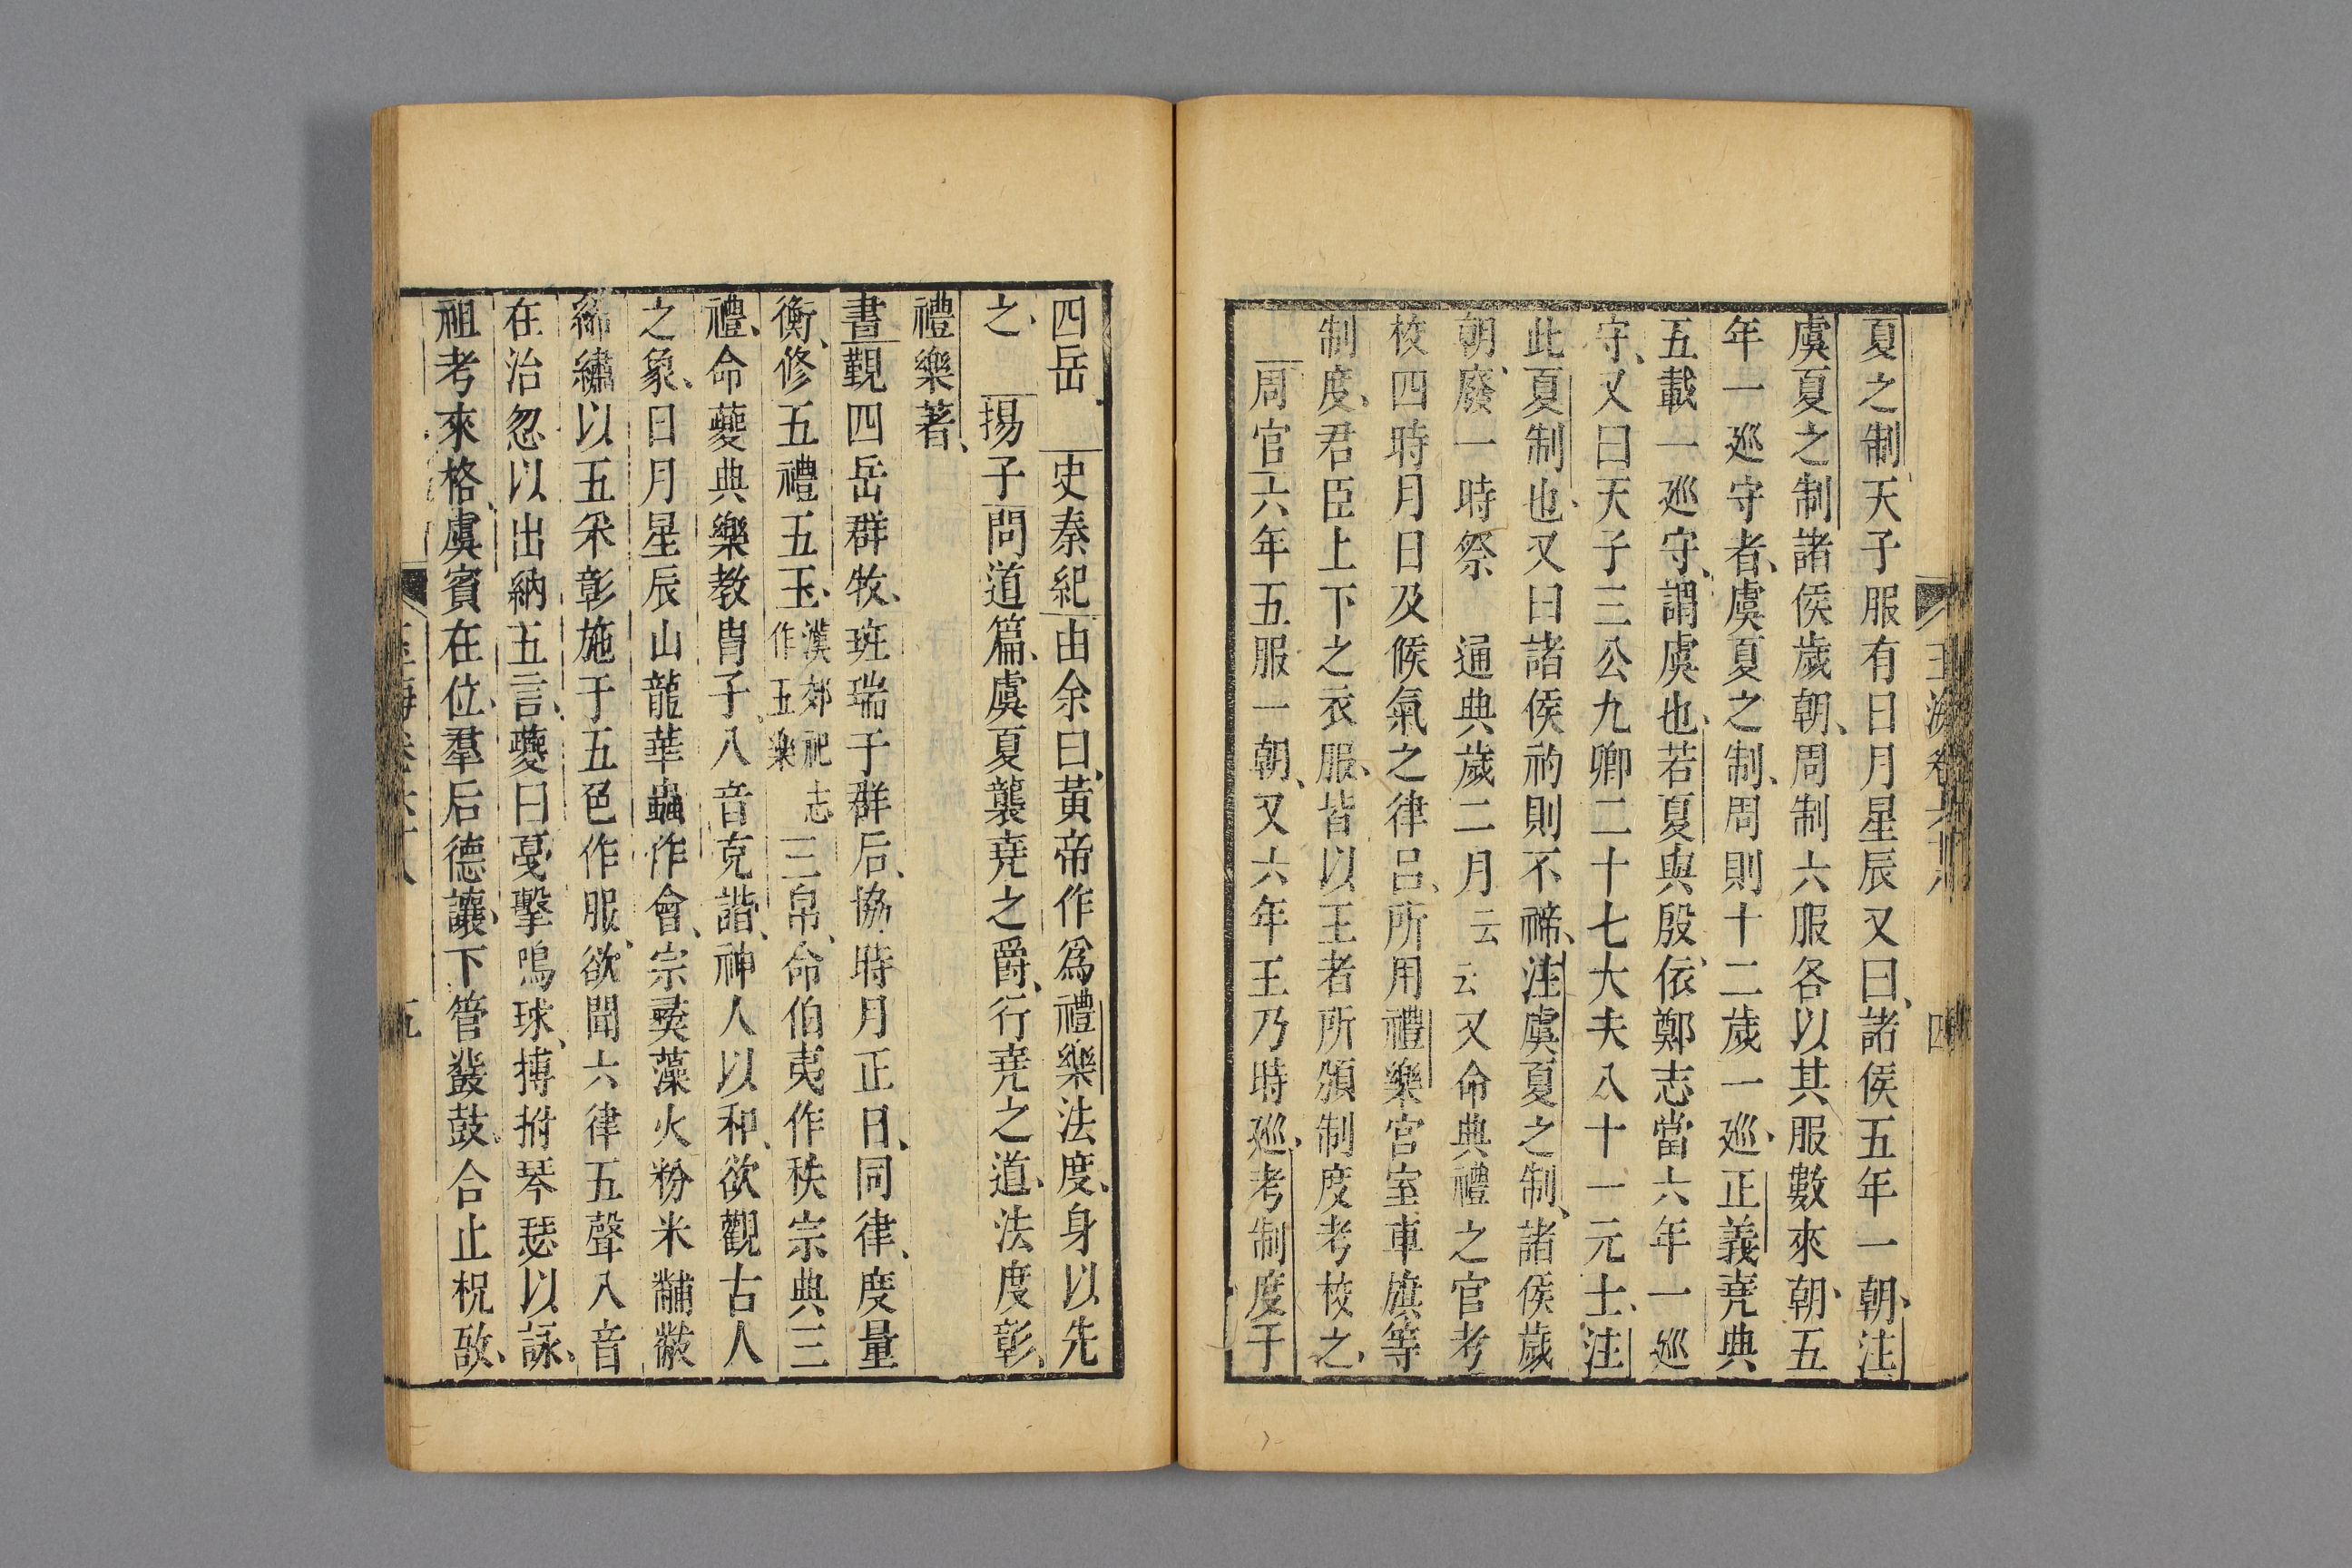 夏之制天子服有日月星辰又曰諸侯五年一朝注
虞夏之制諸侯歲朝周制六服各以其服數來朝五
年一廵守者虞夏之制周則十二歲一廵正義堯典
五載一廵守謂虞也若夏與殷依鄭志當六年一廵
守又曰天子三公九卿二十七大夫八十一元士注
此夏制也又曰諸侯礿則不禘注虞夏之制諸侯歲
朝廢一時祭 通典歲二月云云又命典禮之官考
校四時月日及候氣之律呂所用禮樂官室車旗等
制度君臣上下之衣服皆以王者所頒制度考校之
周官六年五服一朝又六年王乃時廵考制度于
四岳 史秦紀由余曰黃帝作爲禮樂法度身以先
之 揚子問道篇虞夏襲堯之爵行堯之道法度彰
禮樂著
書覲四岳群牧班瑞于群后協時月正日同律度量
衡修五禮五玉漢郊祀志作五樂三帛命伯夷作秩宗典三
禮命夔典樂教胄子八音克諧神人以和欲觀古人
之象日月星辰山龍華蟲作會宗彝藻火粉米黼黻
絺繡以五采彰施于五色作服欲聞六律五聲八音
在治忽以出納五言夔曰戛擊鳴球搏拊琴瑟以詠
祖考來格虞賓在位羣后德讓下管鼗鼓合止柷敔